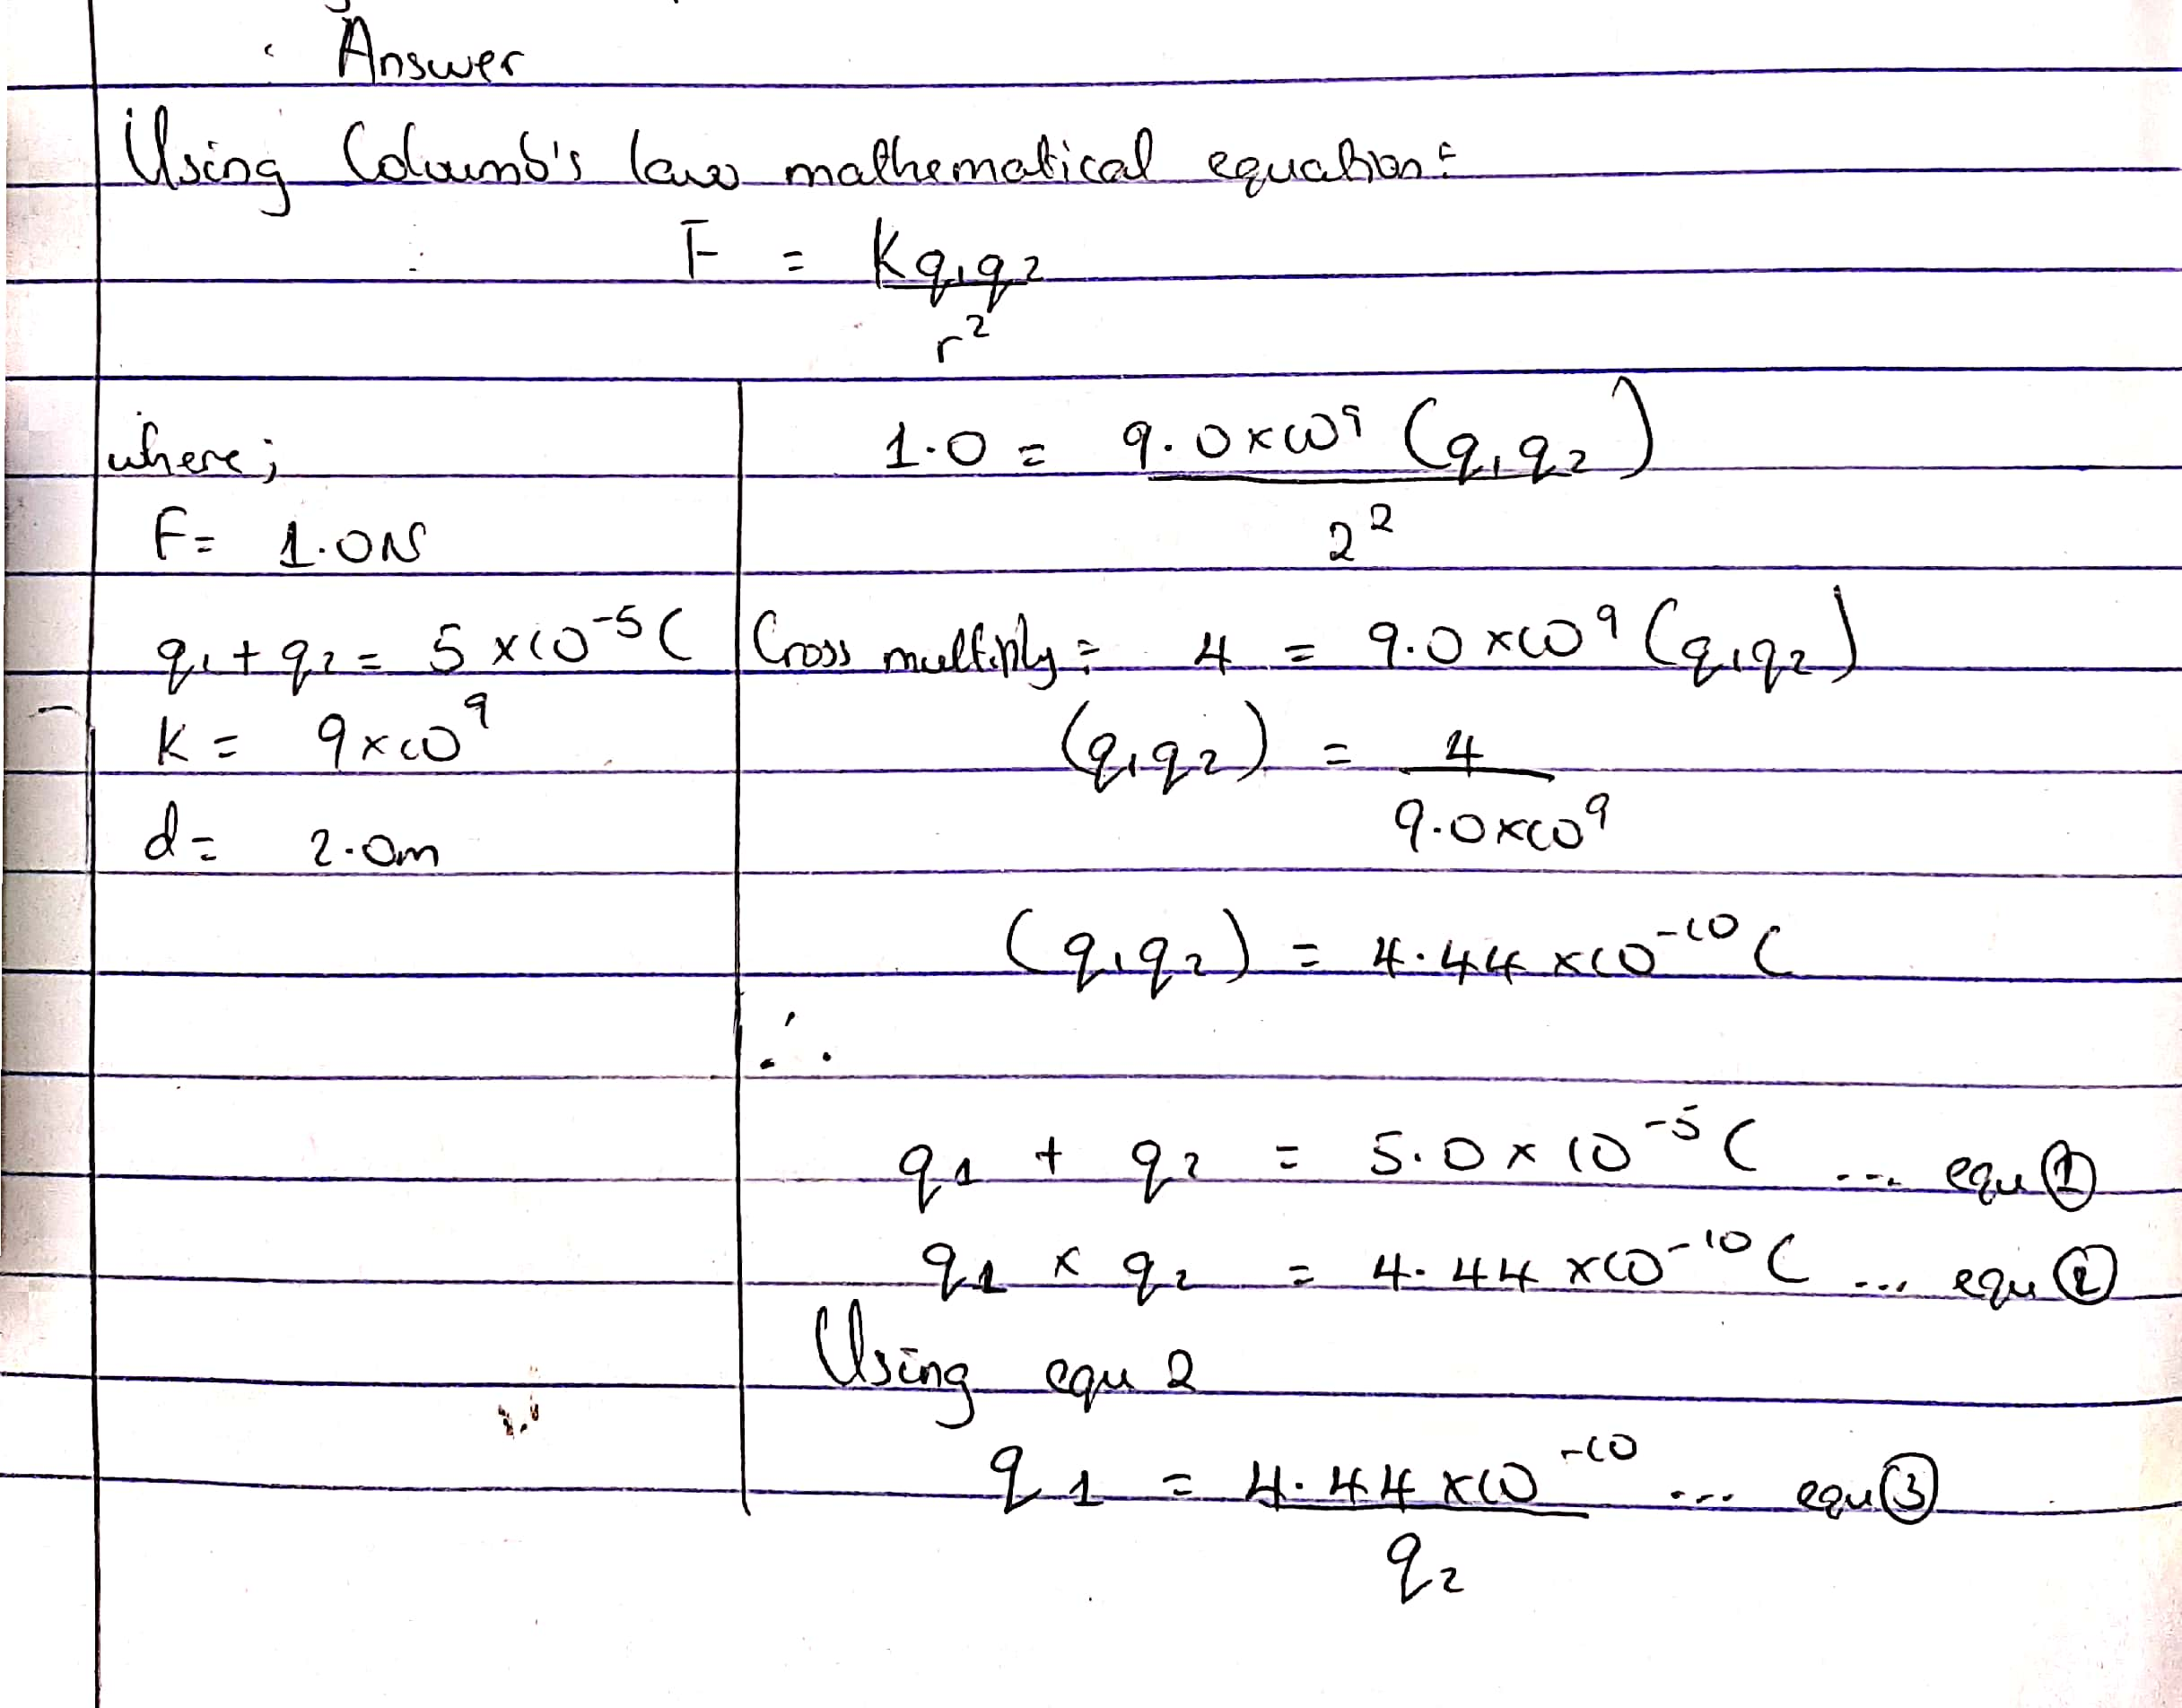 Answer
Using Coloumb's law mathematical equation:
F = Kq1q2
r²
where;
F= 1.0N
q1 + q2 = 5 x10⁻⁵C
K = 9x10⁹
d = 2.0m
1.0 = 9.0x10⁹ (q1q2)
2²
Cross multiply: 4 = 9.0x10⁹ (q1q2)
(q1q2) = 4
9.0x10⁹
(q1q2) = 4.44 x10⁻¹⁰ C
∴
q1 + q2 = 5.0 x 10⁻⁵ C ... equ ①
q1 x q2 = 4.44 x10⁻¹⁰ C ... equ ②
Using equ 2
q1 = 4.44 x10⁻¹⁰ ... equ ③
q2